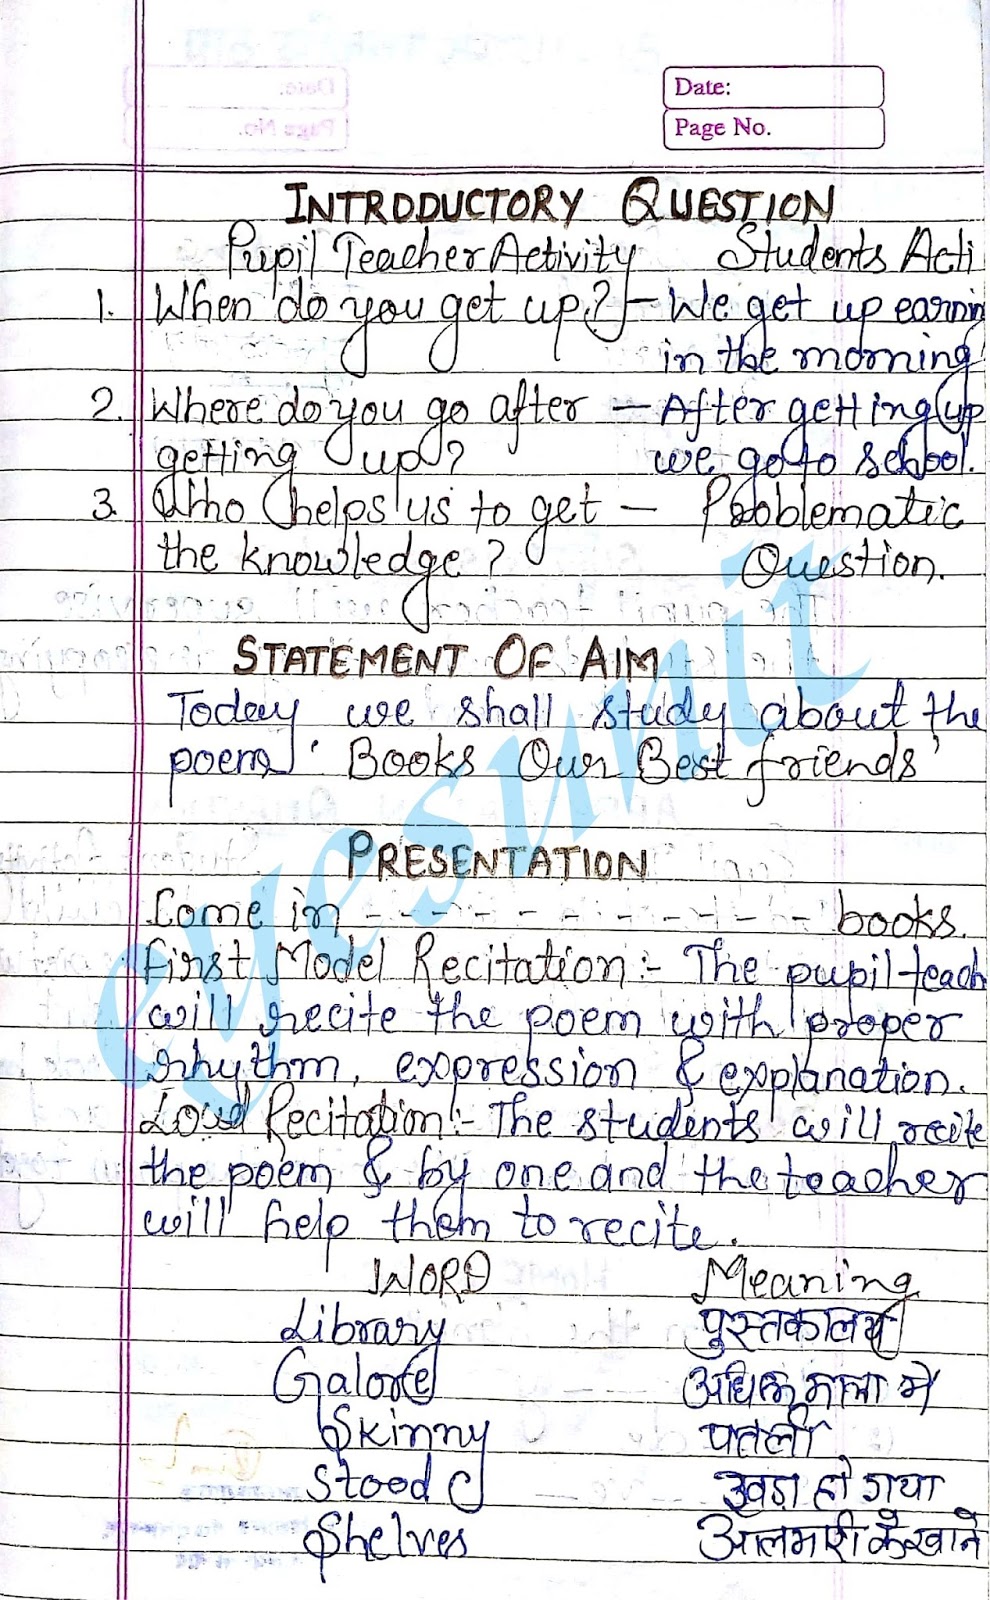 Date:
Page No.
INTRODUCTORY QUESTION
Pupil Teacher Activity Students Acti
1. When do you get up? - We get up earnin
in the morning
2. Where do you go after - After getting up
getting up? we go to school.
3. Who helps us to get - Problematic
the knowledge? Question.
STATEMENT OF AIM
Today we shall study about the
poem 'Books Our Best friends'
PRESENTATION
Come in - - - - - - - - - - - - books.
First Model Recitation:- The pupil teach
will recite the poem with proper
rhythm, expression & explanation.
Loud Recitation:- The students will recite
the poem & by one and the teacher
will help them to recite.
WORD Meaning
Library पुस्तकालय
Galore अधिक मात्रा में
Skinny पतली
Stood खड़ा हो गया
Shelves आलमारी के खाने
eyesunit